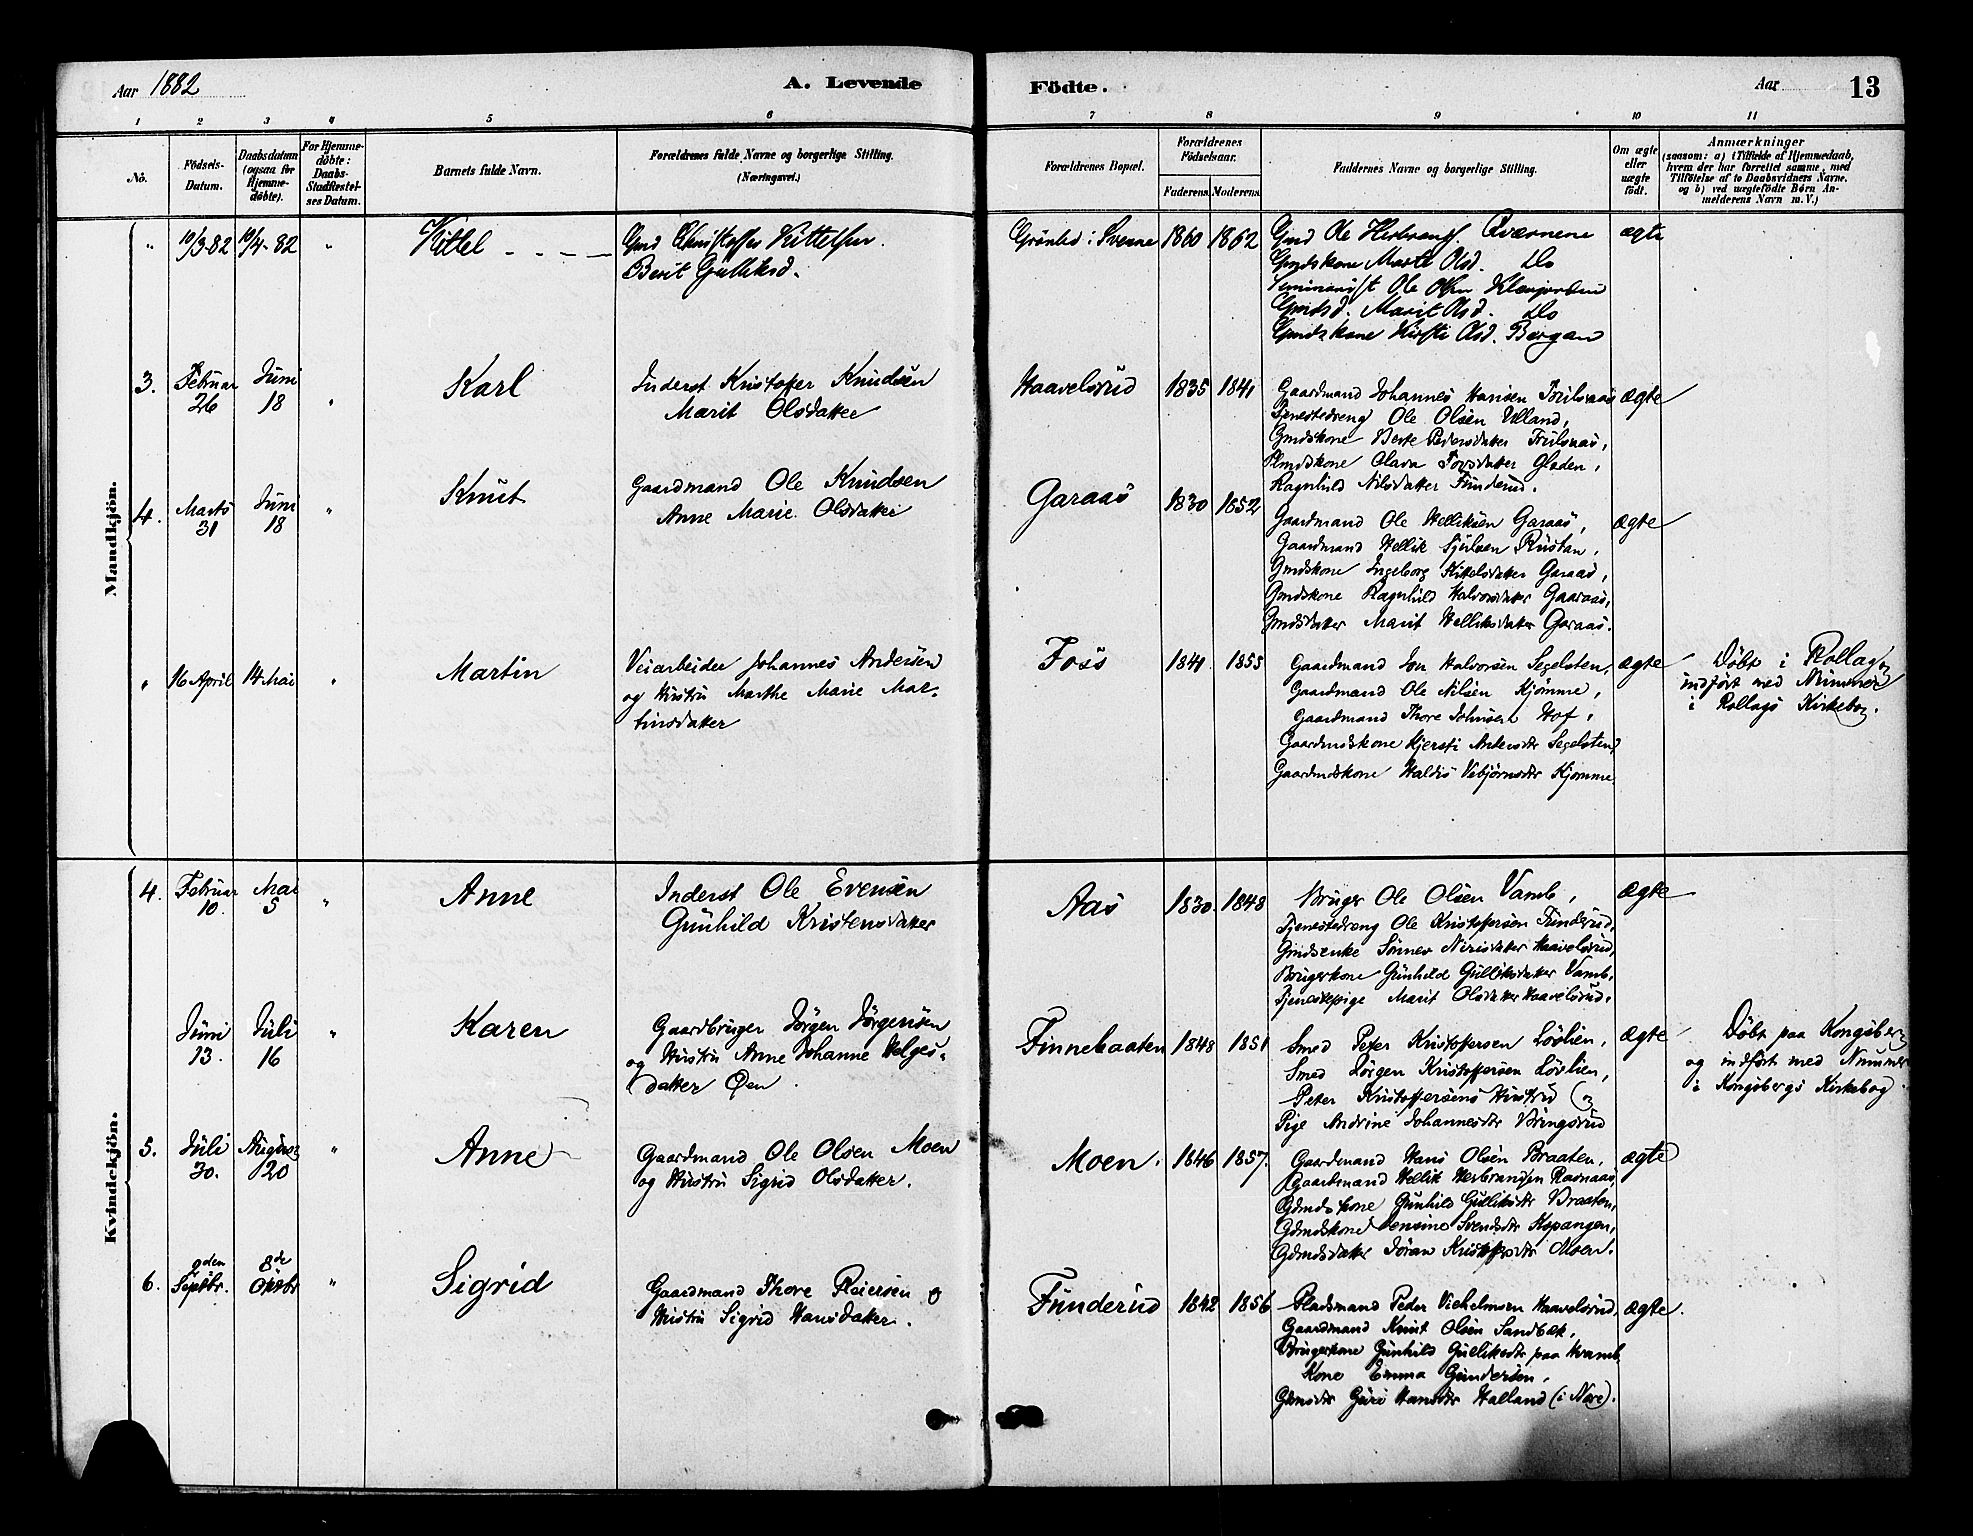 Aar 1882
A. Levende
Födte.
Aar
13
1 2 3 4 5 6 7 8 9 10 11
No.
Födsels-
Datum.
Daabsdatum
(ogsaa for
Hjemme-
døbte).
For Hjemme-
døbte:
Daabs-
Stadfæstel-
ses Datum.
Barnets fulde Navn.
Forældrenes fulde Navne og borgerlige Stilling.
(Næringsvei.)
Forældrenes Bopæl.
Forældrenes
Födselsaar.
Faderens. Moderens.
Faddernes Navne og borgerlige Stilling.
Om ægte
eller
uægte
födt.
Anmærkninger
(saasom: a) i Tilfælde af Hjemmedaab,
hvem der har forrettet samme, med
Tilföielse af to Daabsvidners Navne,
og b) ved uægtefödte Børn An-
melderens Navn m. V.)
Mandkjön.
" 10/3-82 10/4-82 " Kittel
Gmd Christoffer Kittelsen.
Berit Gulliksd.
i Svene 1860 1862
Gmd Ole Herbrands. Qværnene
Gmdskone Marte Olsd. Do
Seminarist Ole Olsen
Gmdsd. Marit Olsd. Do
Gmdskone Kirsti Olsd. Bergan
ægte
3. Februar 26 Juni 18 " Karl
Inderst Kristofer Knudsen
Marit Olsdatter
Haavelsrud 1835 1841
Gaardmand Johannes Hansen
Tjenestedreng Ole Olsen Ulland,
Gmdskone Berte Pedersdatter
Plmdskone Olava
Ragnhild Nilsdatter Funderud.
ægte
4. Marts 31 Juni 18 " Knut
Gaardmand Ole Knudsen
Anne Marie Olsdatter
Garaas 1830 1852
Gaardmand Ole Helliksen Garaas,
Gaardmand Hellik Rustan,
Gmdskone Ingeborg Kittelsdatter Garaas,
Gmdskone Ragnhild Halvorsdatter Gaaraas,
Gmdsdatter Marit Helliksdatter Garaas.
ægte
" 16 April 14 Mai " Martin
Veiarbeider Johannes Andersen
og Hustru Marthe Marie Mar-
tinsdatter
Foss 1841. 1855
Gaardmand Jon Halvorsen Segelsten,
Gaardmand Ole Nilsen Kjømme,
Gaardmand Thore Johnsen Hof,
Gaardmdskone Kjersti Andersdtr Segelsten,
Gaardmdskone Haldis Vebjørnsdtr Kjømme
ægte
Døbt i Rollag og
indført med Nummer
i Rollags Kirkebog.
Kvindekjön.
4. Februar 10. Mai 5 " Anne
Inderst Ole Evensen
Gunhild Kristensdatter
Aas 1830. 1848
Bruger Ole Olsen Vamb,
Tjenestedreng Ole Kristoffersen Funderud,
Gmdsenke Sønnev Haavelsrud,
Brugerkone Gunhild Gulliksdatter Vamb,
Tjenestepige Marit Olsdatter Haavelsrud.
ægte
Juni 13. Juli 16 " Karen
Gaardbruger Jørgen Jørgensen
og Hustru Anne Johanne Helges-
datter Øen.
Finnebraaten 1848 1851
Smed Peter Kristoffersen Løvlien,
Smed Jørgen Kristoffersen Løvlien,
Peter Kristoffersens Hustru og
Pige Andrine Johannesdtr Bringsrud
ægte
Døbt paa Kongsberg
og indført med Nummer
i Kongsbergs Kirkebog.
5. Juli 30. August 20 " Anne
Gaardmand Ole Olsen Moen
og Hustru Sigrid Olsdatter.
Moen. 1846 1857.
Gaardmand Hans Olsen Braaten,
Gaardmand Hellik Herbrandsen Ravnaas,
Gdmdskone Gunhild Gulliksdtr Braaten,
Gdmdskone Jensine Svendsdtr Kopangen,
Gdmdsdatter Jøran Kristoffersdtr Moen.
ægte
6. 9den Septbr. 8de Oktbr " Sigrid
Gaardmand Thore Reiersen og
Hustru Sigrid Hansdatter.
Funderud 1842 1856
Pladsmand Peder Vilhelmsen Haavelsrud,
Gaardmand Knut Olsen Sandbæk,
Brugerkone Gunhild Gulliksdtr paa Hvamb
Kone Emma Gundersen,
Gdmdsdtr Guri Hansdtr Halland (i Nore).
ægte.